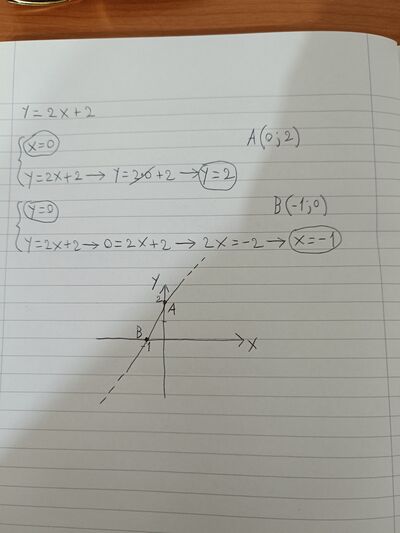 y = 2x + 2
x=0 A(0;2)
y=2x+2 → y=2·0+2 → y=2
y=0 B(-1;0)
y=2x+2 → 0=2x+2 → 2x=-2 → x=-1
y
2
A
B
-1
x